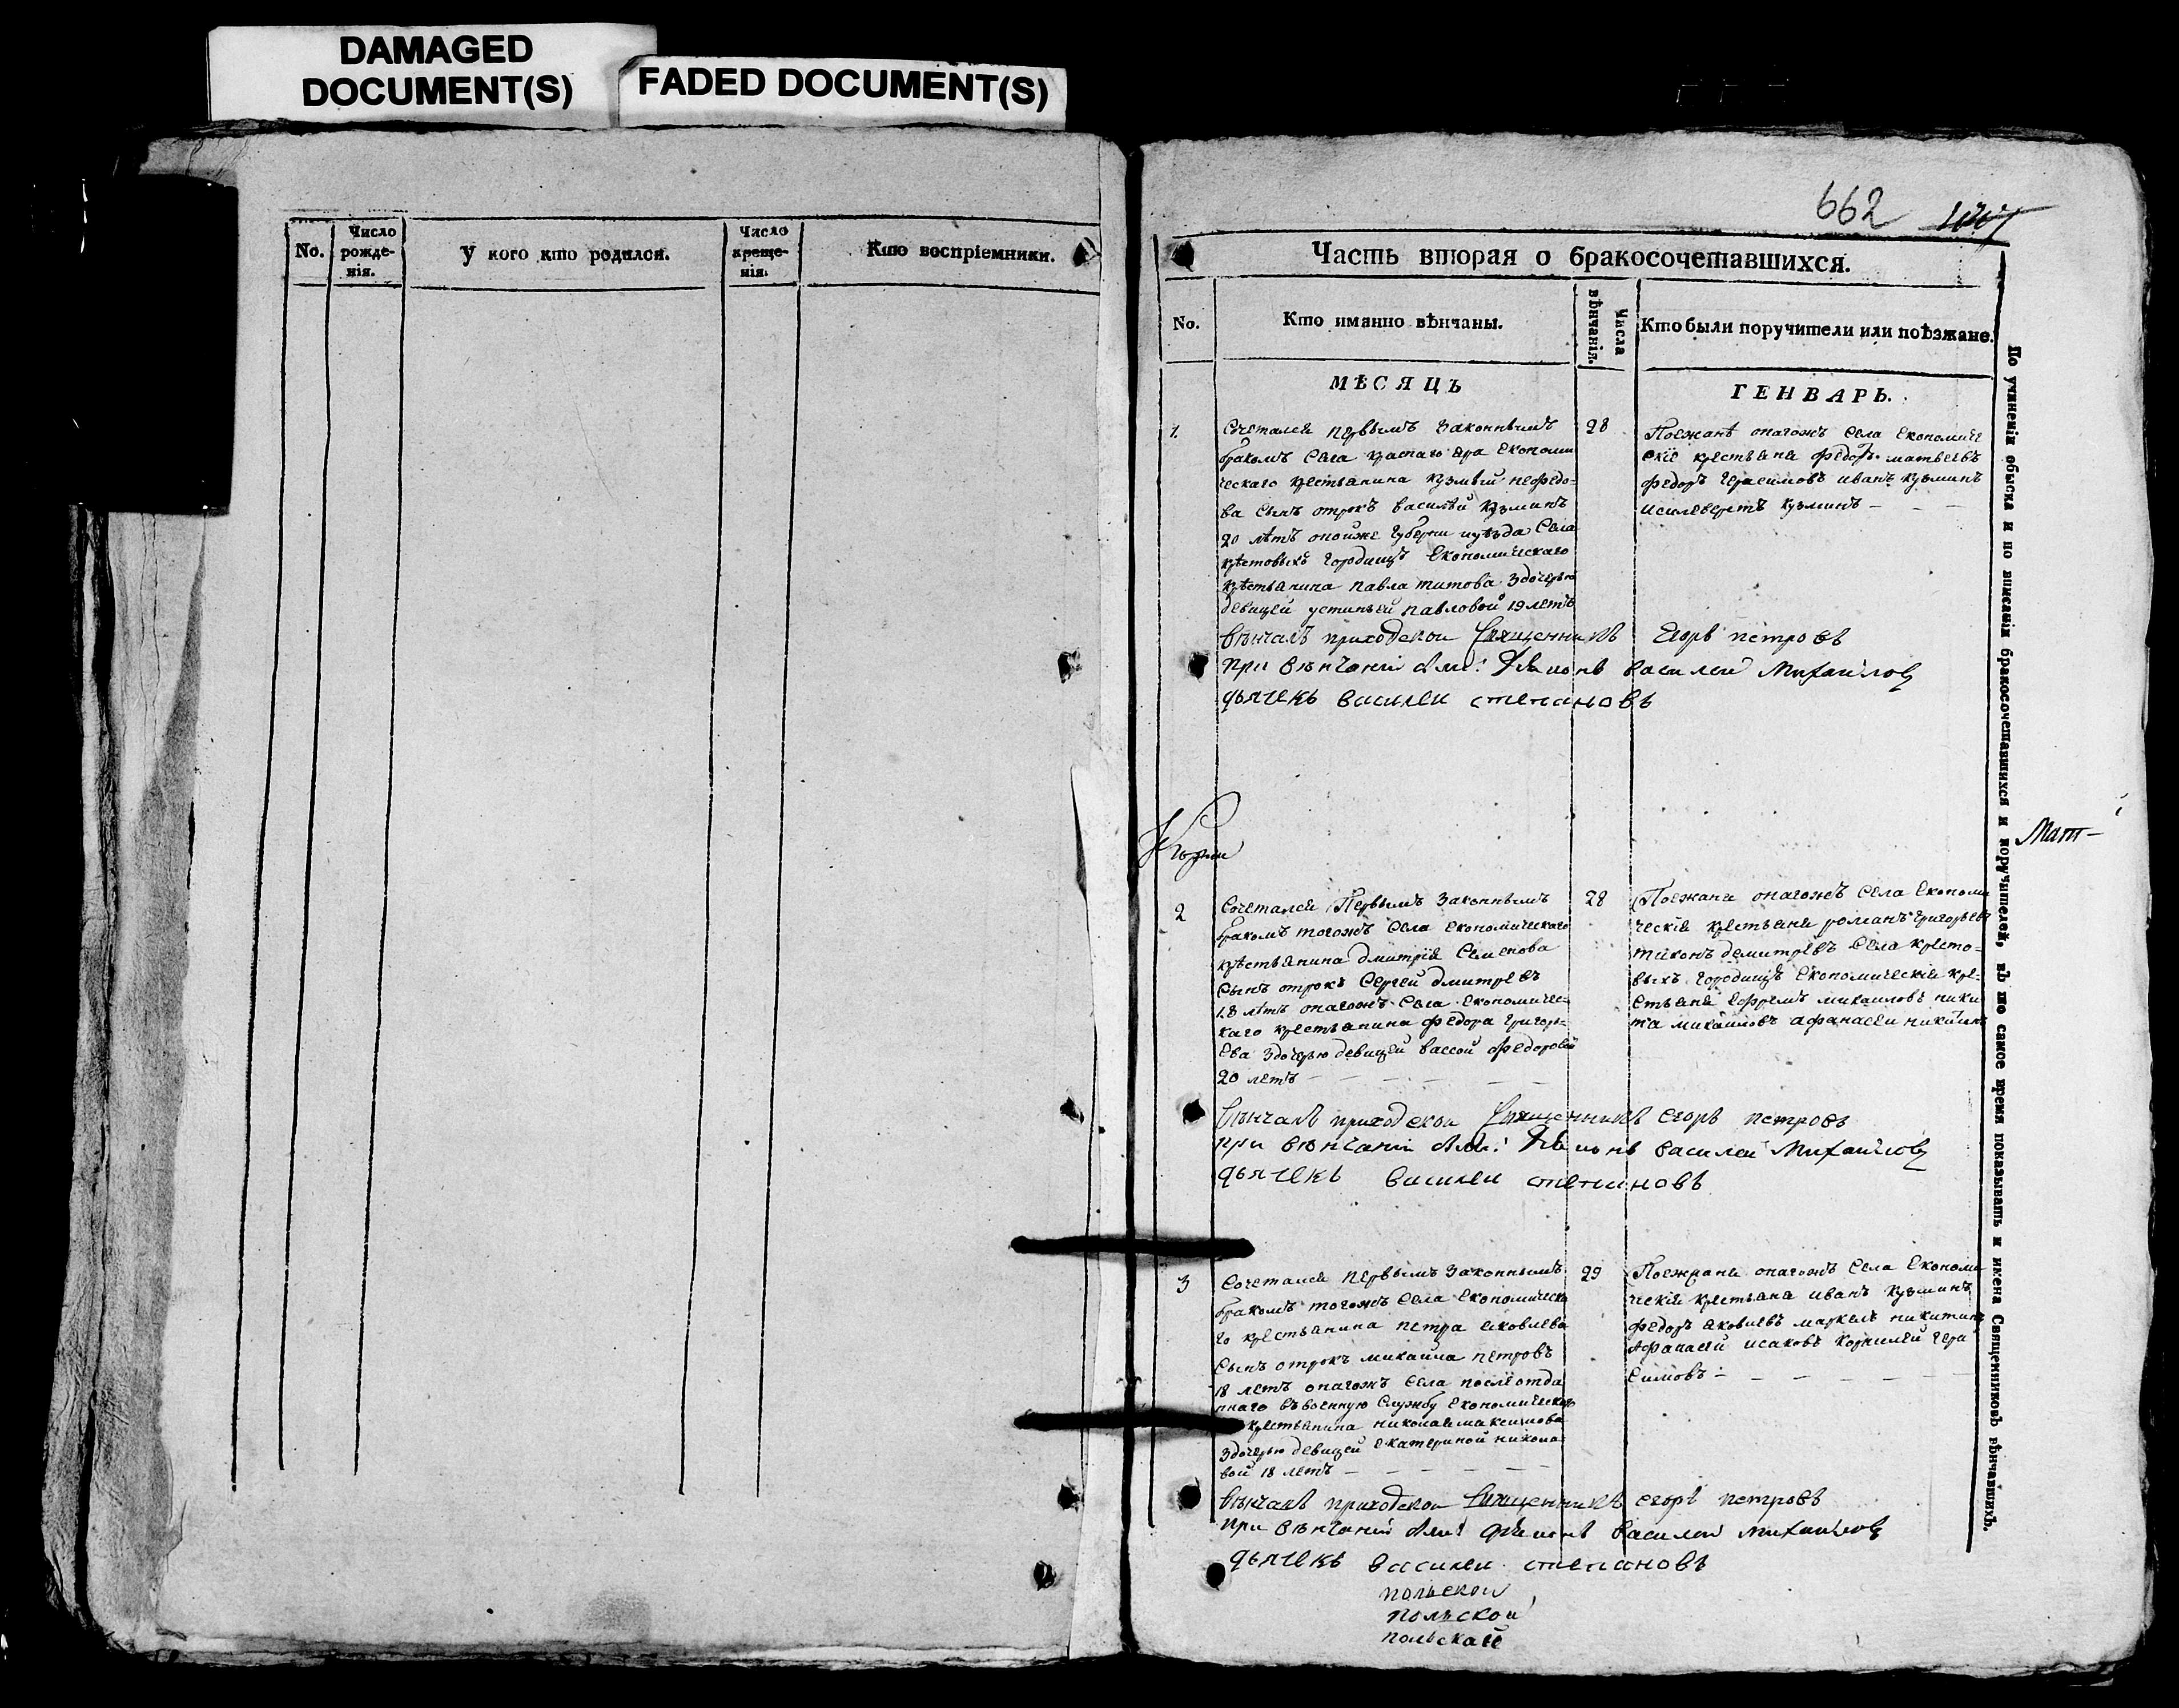 DAMAGED
DOCUMENT(S)
FADED DOCUMENT(S)
No.
Число
рожде-
нія.
У кого кто родился.
Число
креще-
нія.
Кто воспріемники.
662
Часть вторая о бракосочетавшихся.
No.
Кто иманно вѣнчаны.
Числа
вѣнчанія.
Кто были поручители или поѣзжане.
МѢСЯЦЪ
ГЕНВАРЬ.
1.
Сочетался первымъ законнымъ
бракомъ Села краснаго яра Економи
ческаго крестьянина кузмы нефедо-
ва Сынъ отрокъ василей кузминъ
20 лѣтъ онойже губерни иуѣзда Села
крѣстовыхъ городищъ Економическаго
крѣстьянина павла титова здочерью
девицей устиньей павловой 19 летъ
28
Поежанѣ онагожъ Села Економиче
скiе крестьяне федоръ матвеевъ
федоръ герасимовъ иванъ кузминъ
иселеверстъ кузминъ
Вѣнчалъ приходскои Священникъ Егоръ петровъ
При вѣнчанiи были: Диионъ василей Михаиловъ
дьячекъ василеи степановъ
2
Сочетался Первымъ Законнымъ
бракомъ тогожъ Села Економическаго
крѣстьянина дмитрiя Семенова
Сынъ отрокъ Сергей дмитреевъ
18 летъ онагожъ Села Економичес-
каго крестьянина федора григорь-
ева здочерью девицей вассой федоровой
20 летъ
28
Поежане онагожъ Села Економи
ческiя крестьяне романъ григорьевъ
тихонъ демитрѣевъ Села кресто-
выхъ городищъ Економическiе кре-
стьяне Ефремъ михаиловъ ники
та михаиловъ афанасеи никитинъ
Вѣнчалъ приходскои Священникъ егоръ петровъ
при вѣнчанiи были: Диионъ василеи Михаиловъ
дьячекъ василеи степановъ
3
Сочетался первымъ Законнымъ
бракомъ тогожъ Села Економическа
го крестьянина петра яковлева
Сынъ отрокъ михаила петровъ
18 летъ онагожъ Села послѣ отда
ннаго въвоенную Службу Економическаго
крестьянина николая максимова
здочерью девицей екатериной никола-
вой 18 летъ
29
Поежрани онагожъ Села Економи
ческiя крестьяна иванъ кузминъ
федоръ яковлевъ маркелъ никитинъ
Афанасеи исаковъ корнилей гера
симовъ
вѣнчалъ приходскои Священникъ егоръ петровъ
при вѣнчанiи были: диионъ василеи михаиловъ
дьячекъ василеи степановъ
польскои
польскои
польскай
По учиненіи обыска и по вписаніи бракосочетавшихся и поручителей, въ то самое время показывать и имена Священниковъ вѣнчавшихъ.
Мат-